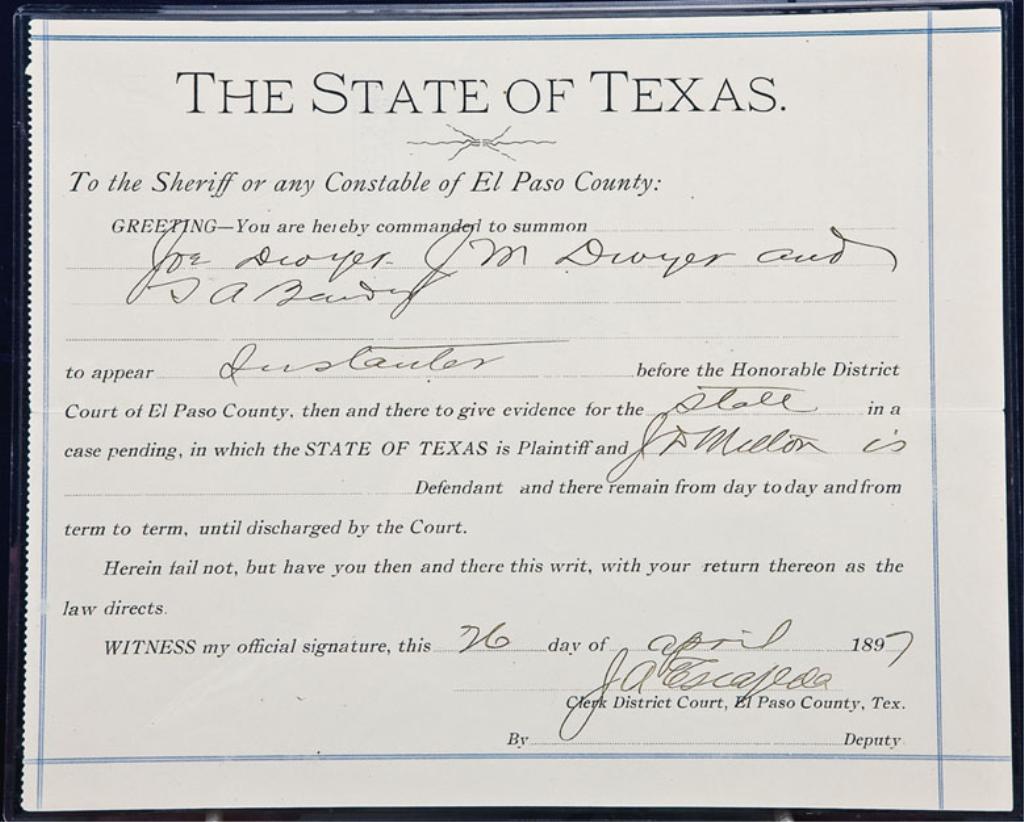 THE STATE OF TEXAS.
To the Sheriff or any Constable of El Paso County:
GREETING—You are hereby commanded to summon
Joe Dwyer J M Dwyer and
A
to appear Instanter before the Honorable District
Court of El Paso County, then and there to give evidence for the State in a
case pending, in which the STATE OF TEXAS is Plaintiff and J D Milton is
Defendant and there remain from day to day and from
term to term, until discharged by the Court.
Herein fail not, but have you then and there this writ, with your return thereon as the
law directs.
WITNESS my official signature, this 26 day of april 1897
J A Escajeda
Clerk District Court, El Paso County, Tex.
By Deputy